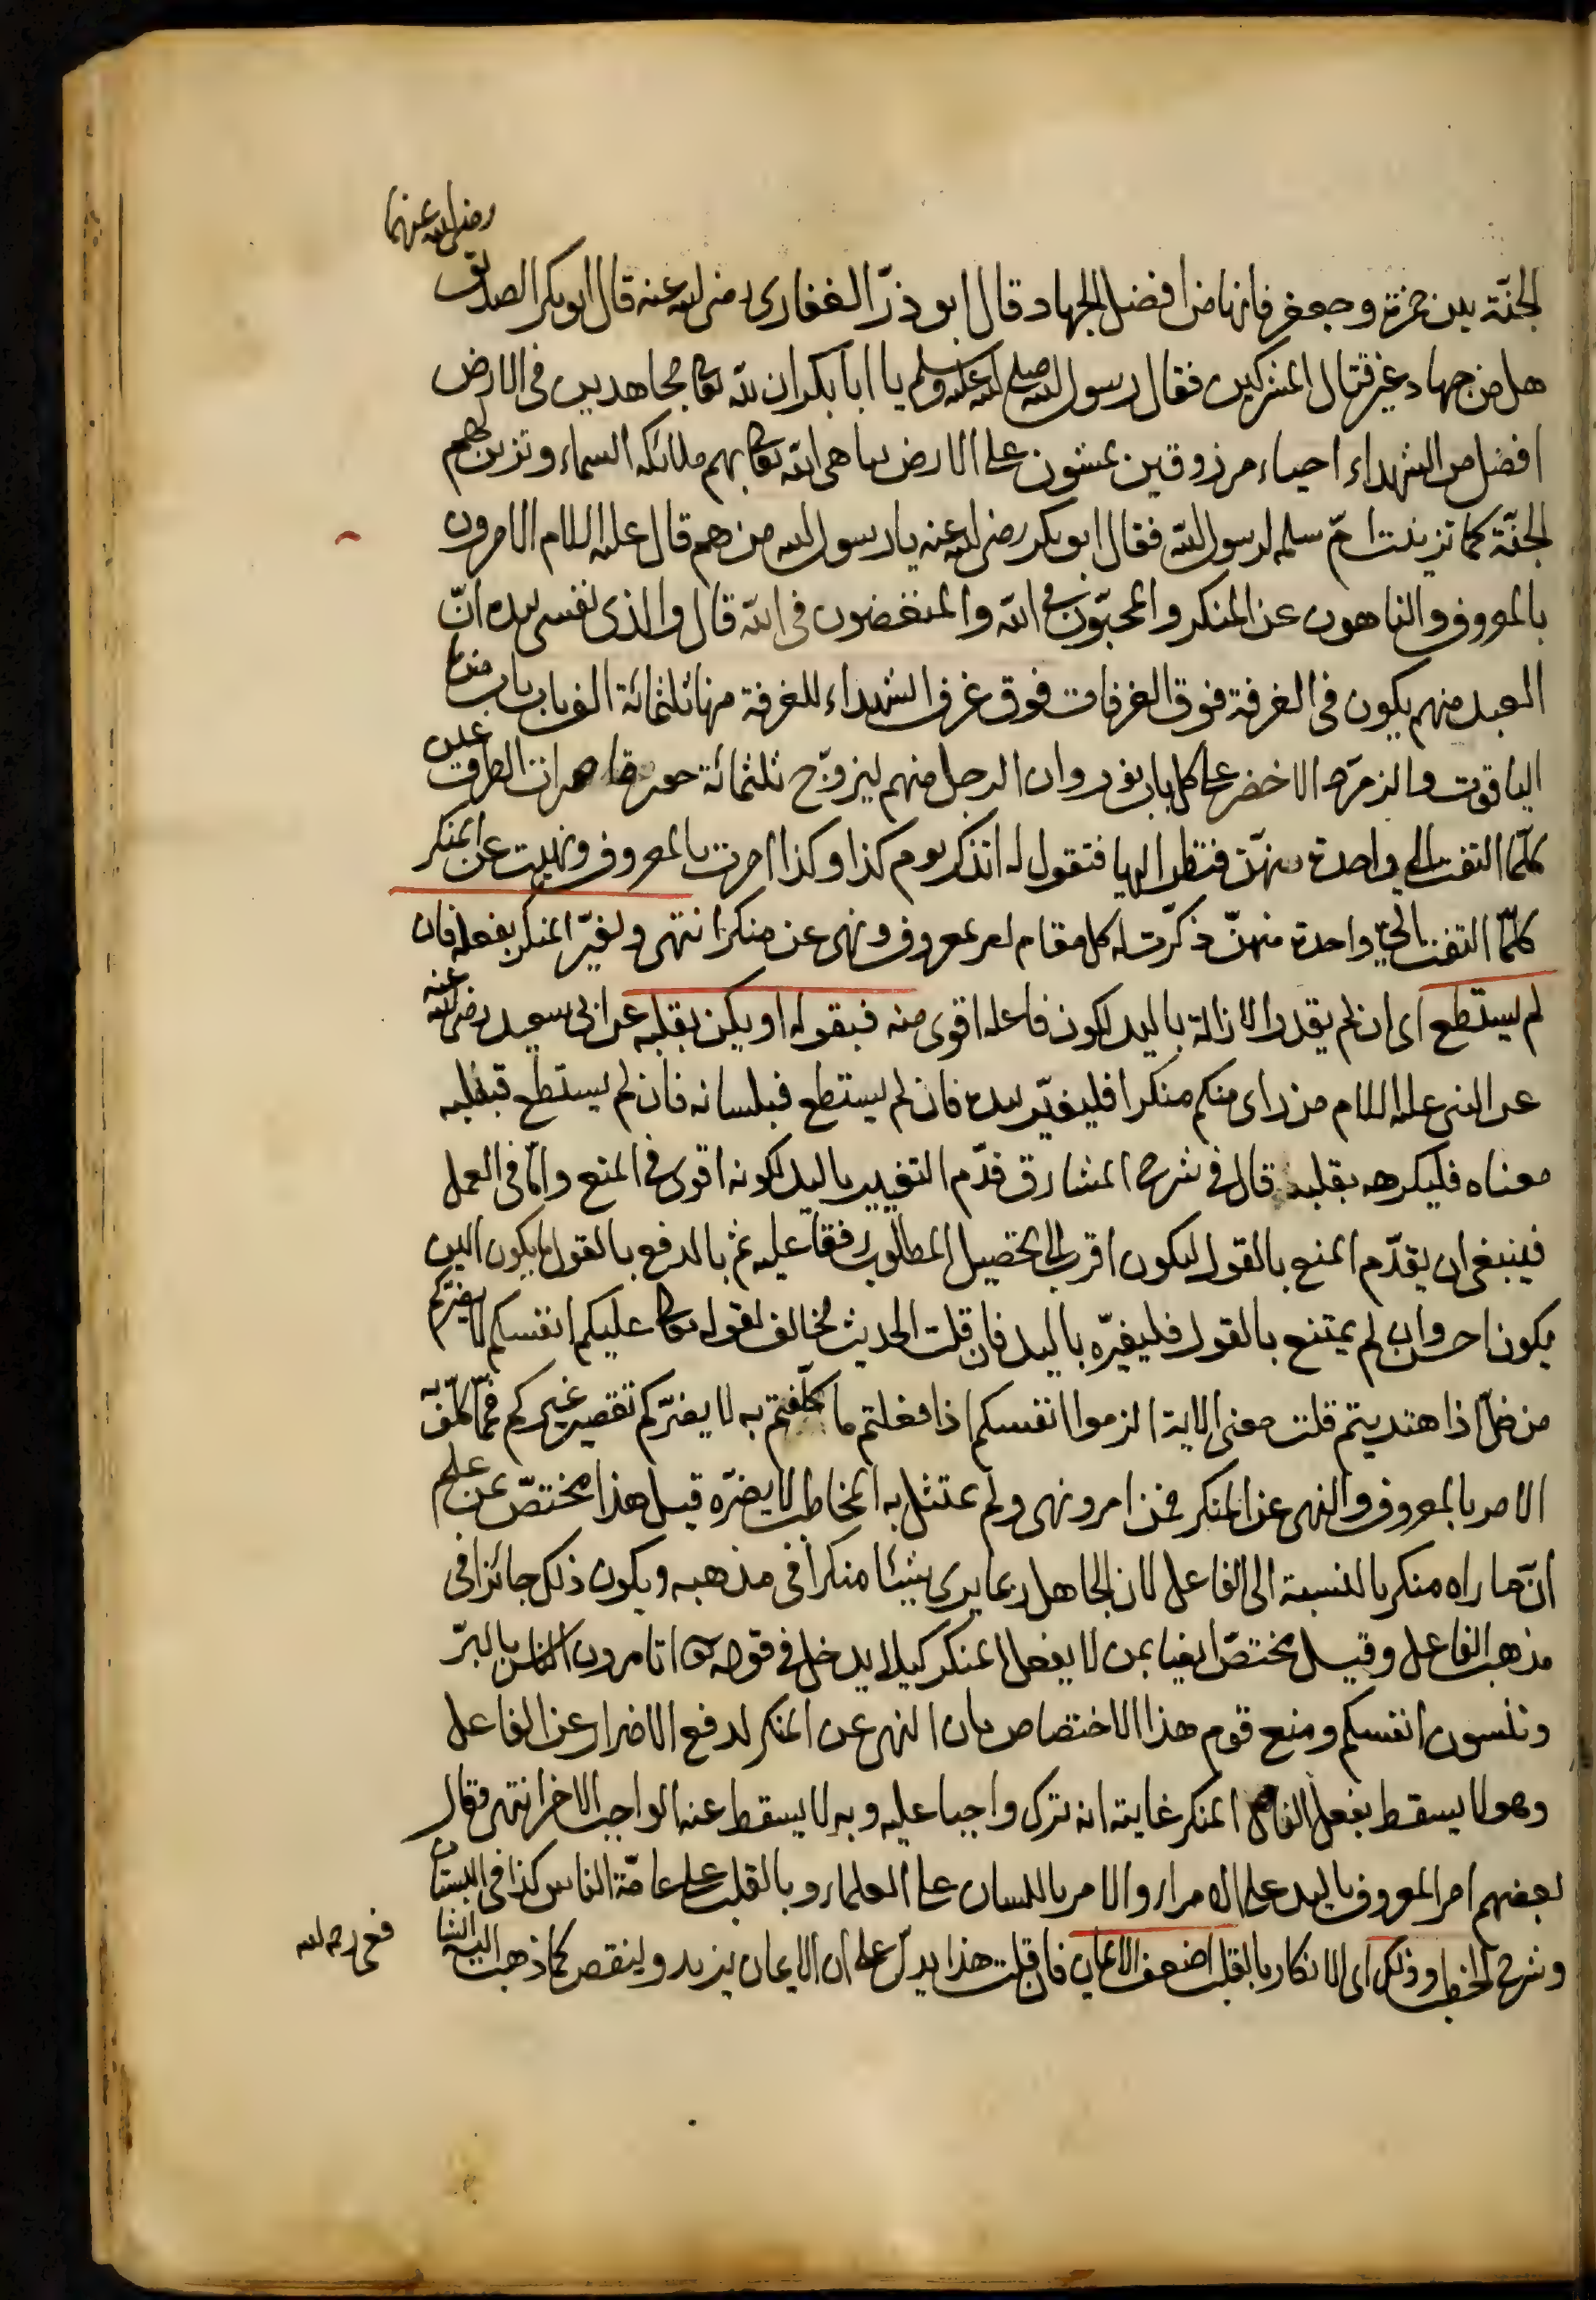 رضى الله عنهما
الجنّة بين حمزة وجعفر فانها من افضل الجهاد وقال ابو ذرّ الغفارى رضى الله عنه قال ابو بكر الصديق
هل من جهاد غير قتال المشركين فقال رسول الله صلى الله عليه وسلم يا ابا بكر ان لله تعا مجاهدين فى الارض
افضل من الشهداء احياء مرزوقين يمشون على الارض يباهى الله تعا بهم ملائكة السماء وتزين لهم
الجنّة كما تزينت امّ سلمه لرسول الله فقال ابو بكر رضى الله عنه يا رسول الله من هم قال عليه السلام الامرون
بالمعروف والناهون عن المنكر والمحبّون فى الله والمبغضون فى الله قال والذى نفسى بيده انّ
العبد منهم يكون فى الغرفة فوق الغرفات فوق غرف الشهداء للغرفة منها ثلثمائة الف باب باب منها
الياقوت والزمرّد الاخضر على كل باب نور وان الرجل منهم ليزوّج ثلثمائة حور قاصرات الطرف عين
كلّما التفت الى واحدة منهنّ فنظر اليها فتقول له اتذكر يوم كذا وكذا امرت بالمعروف ونهيت عن المنكر
كلّما التفت الى واحدة منهنّ ذكّرت له كل مقام امر بمعروف ونهى عن منكر انتهى وليغيّر المنكر بفعله فان
لم يستطع اى ان لم يقدر الازالة باليد لكون فاعله اقوى منه فبقوله او يكن بقلبه عن ابى سعيد رضى الله عنه
عن النبى عليه السلام من راى منكم منكرا فليغيّر بيده فان لم يستطع فبلسانه فان لم يستطع فبقلبه
معناه فليكرهه بقلبه قال فى شرح المشارق قدّم التغيير باليد لكونه اقوى فى المنع وامّا فى العمل
فينبغى ان يقدّم المنع بالقول ليكون اقرب الى تحصيل المطلوب رفقا عليه ثم بالدفع بالقول ما يكون الين
يكون احسن وان لم يمتنع بالقول فليغيّره باليد فان قلت الحديث مخالف لقوله تعا عليكم انفسكم لا يضرّكم
من ضلّ اذا هتديتم قلت معنى الاية الزموا انفسكم اذا فعلتم ما كلّفتم به لا يضرّكم تقصير غيركم فممّا كلّف به
الامر بالمعروف والنهى عن المنكر فمن امر ونهى ولم يمتثل به المخاطب لا يضرّه قيل هذا مختصّ بمن علم
انّ ما راه منكر بالنسبة الى الفاعل لان الجاهل ربما يرى شيئا منكرا فى مذهبه ويكون ذلك جائزا فى
مذهب الفاعل وقيل مختصّ ايضا بمن لا يفعل المنكر كيلا يدخل فى قوله تعا اتامرون الناس بالبرّ
وتنسون انفسكم ومنع قوم هذا الاختصاص بان النهى عن المنكر لدفع الاضرار عن الفاعل
وهو لا يسقط بفعل الفاعل المنكر غايته انه ترك واجبا عليه وبه لا يسقط عنه الواجب الاخر انتهى قال
بعضهم امر المعروف باليد على الامراء والامر باللسان على العلماء وبالقلب على عامّة الناس كذا فى البستان
وشرح الخطب وذلك اى الانكار بالقلب اضعف الايمان فان قلت هذا يدلّ على ان الايمان يزيد وينقص كما ذهب اليه الشا
فعى رحمه الله